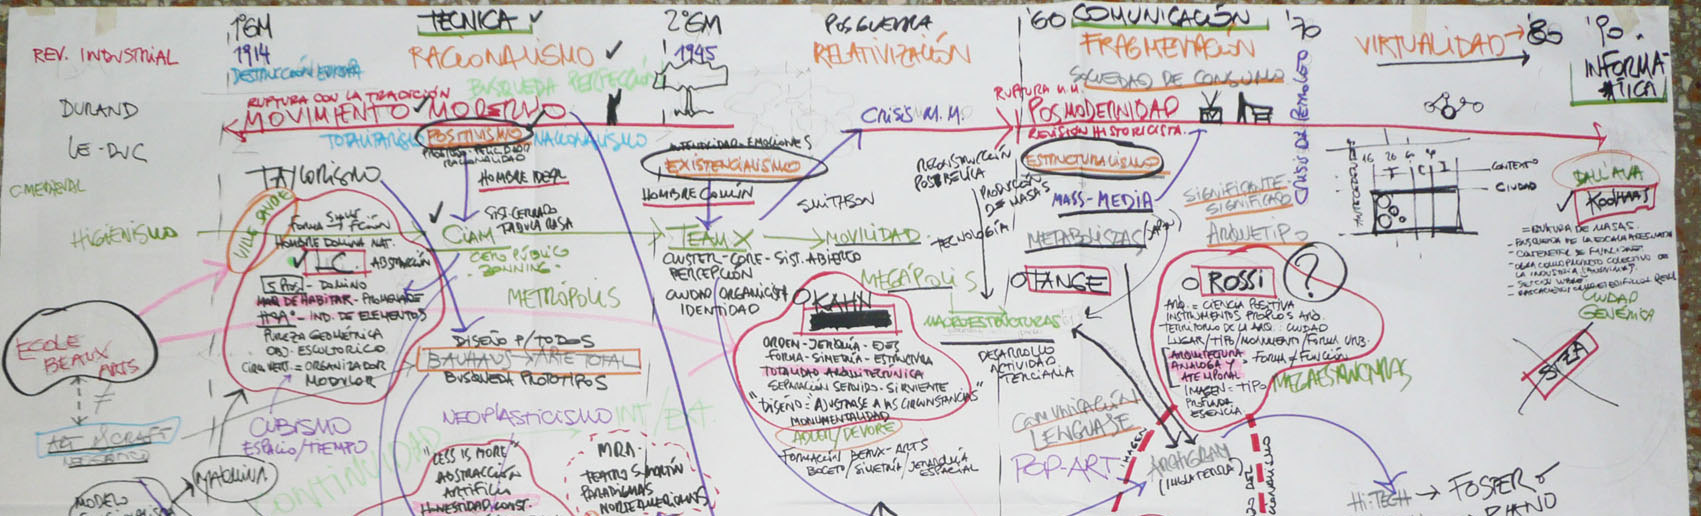 1ºGM
TÉCNICA
2ºGM
POSGUERRA
'60
COMUNICACIÓN
'70
VIRTUALIDAD
'80
'90.
REV. INDUSTRIAL
1914
RACIONALISMO
1945
RELATIVIZACIÓN
FRAGMENTACIÓN
INFORMA-
TICA
DESTRUCCIÓN EUROPA
BUSQUEDA PERFECCIÓN
SOCIEDAD DE CONSUMO
CRISIS DEL PETROLEO
DURAND
RUPTURA CON LA TRADICIÓN
MOVIMIENTO MODERNO
CRISIS M.M.
RUPTURA M.M.
POSMODERNIDAD
REVISIÓN HISTORICISTA.
LE-DUC
POSITIVISMO
NACIONALISMO
RACIONALIDAD
HOMBRE IDEAL
EXISTENCIALISMO
HOMBRE COMÚN
RECONSTRUCCIÓN
POSTBELICA
ESTRUCTURALISMO
PRODUCCIÓN
DE MASAS
MASS-MEDIA
SIGNIFICANTE
SIGNIFICADO
ARQUETIPO
CONTEXTO
CIUDAD
DALL'AVA
KOOLHAAS
C. MEDIEVAL
TAYLORISMO
HIGIENISMO
VILLE SAVOIE
HOMBRE DOMINA NAT.
L.C.
ABSTRACCIÓN
CIAM
SIST. CERRADO
TABULA RASA
CERO PÚBLICO
ZONNING
METRÓPOLIS
TEAM X
CLUSTER-CORE-SIST. ABIERTO
PERCEPCIÓN
CIUDAD ORGANICISTA
IDENTIDAD
MOVILIDAD
SMITHSON
TECNOLOGÍA/
METABOLISTAS
TANGE
MEGÁPOLIS
MACROESTRUCTURAS
DESARROLLO
ACTIVIDAD
TERCIARIA
ROSSI
?
ARQ. = CIENCIA POSITIVA
INSTRUMENTOS PROPIOS ARQ.
TERRITORIO DE LA ARQ.: CIUDAD
LUGAR/TIPO/MONUMENTO/FORMA URB.
ARQUITECTURA
ANALOGA Y
ATEMPORAL
FORMA ≠ FUNCIÓN
IMAGEN = TIPO
PROFUNDA
ESENCIA
MEGAESTRUCTURAS
CIUDAD
GENÉRICA
SIZA
5 PTOS. - DOMINO
MAQ. DE HABITAR - PROMENADE
HºAº - IND. DE ELEMENTOS
PUREZA GEOMÉTRICA
OBJ. ESCULTORICO
CIRC. VERT. = ORGANIZADOR
MODULOR
ECOLE
BEAUX
ARTS
ART & CRAFT
DISEÑO P/TODOS
BAUHAUS → ARTE TOTAL
BÚSQUEDA PROTOTIPOS
KAHN
ORDEN-JERARQUÍA-EJES
FORMA-SIMETRÍA-ESTRUCTURA
TOTALIDAD ARQUITECTONICA
SEPARACIÓN SERVIDO-SIRVIENTE
"DISEÑO = AJUSTARSE A LAS CIRCUNSTANCIAS"
MONUMENTALIDAD
ADLER/DEVORE
FORMACIÓN BEAUX-ARTS
BOCETO/SIMETRÍA/JERARQUÍA
ESPACIAL
CUBISMO
ESPACIO/TIEMPO
NEOPLASTICISMO
INT/EXT
CONTINUIDAD
"LESS IS MORE"
ABSTRACCIÓN
ARTIFICIO
HONESTIDAD CONST.
MRA.
TEATRO S. MARTÍN
PARADIGMAS
NORTEAMERICANOS
MAQUINA
MODELO
COMUNICACIÓN
LENGUAJE
IMAGEN
POP-ART
ARCHIGRAM
(INGLATERRA)
HI-TECH → FOSTER
PIANO